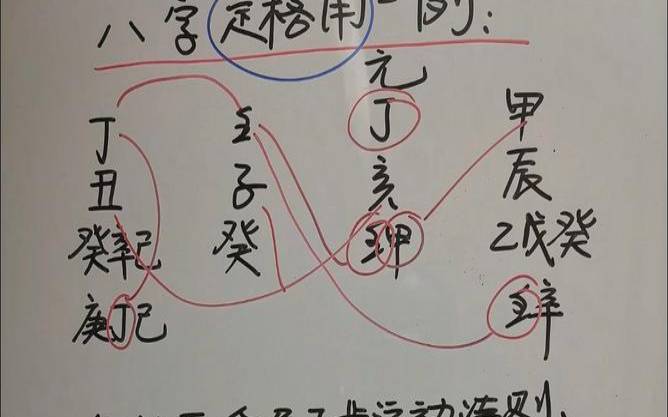 八字定格用一例:
元
丁 壬 丁 甲
丑 子 亥 辰
癸辛己 癸 壬甲 乙戊癸
庚丁己 壬辛